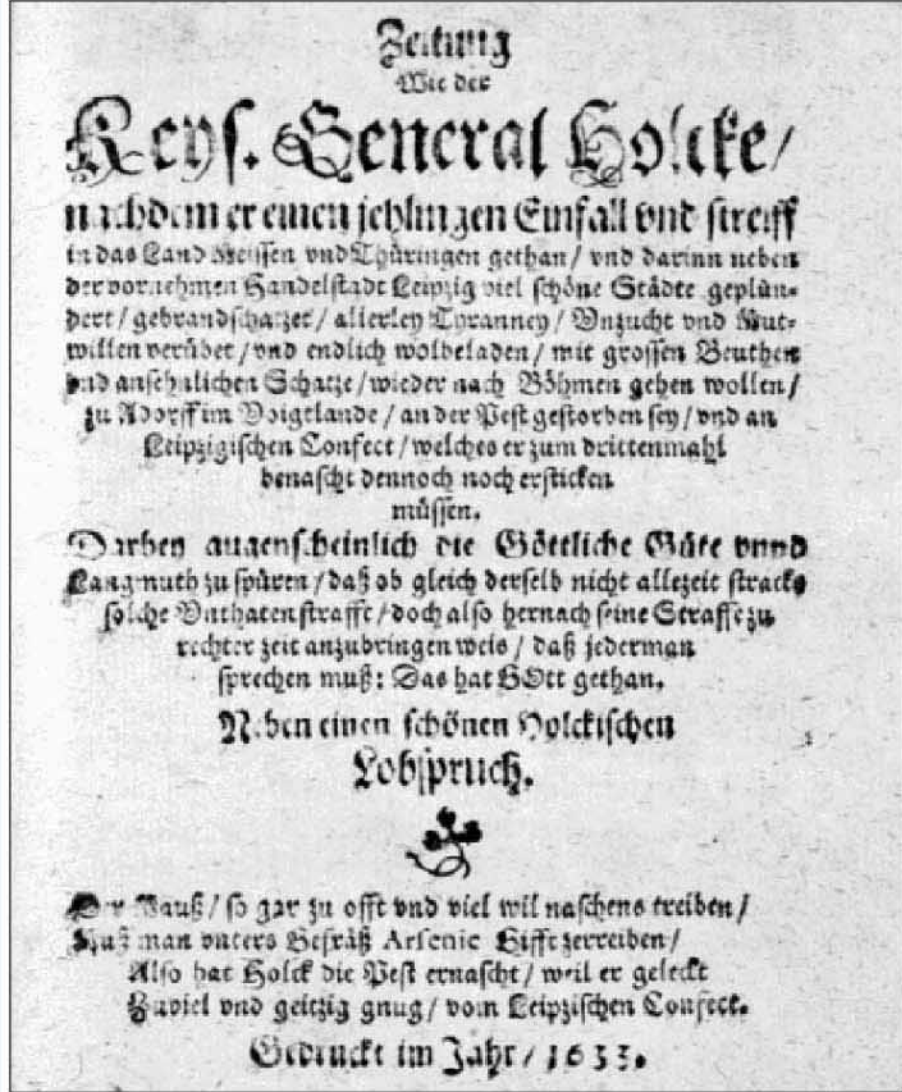 Zeitung
Wie der
Keys. General Holcke /
nachdem er einen jehlingen Einfall vnd streiff
in das Land Meissen vnd Thüringen gethan / vnd darinn neben
der vornehmen Handelstadt Leipzig viel schöne Städte geplün-
dert / gebrandschatzet / allerley Tyranney / Vnzucht vnd Mut-
willen verübet / vnd endlich wolbeladen / mit grossen Beuthen
vnd ansehnlichen Schatze / wieder nach Böhmen gehen wollen /
zu Adorff im Voigtlande / an der Pest gestorben sey / vnd an
Leipzigischen Confect / welches er zum drittenmahl
benascht dennoch noch ersticken
müssen.
Darbey augenscheinlich die Göttliche Güte vnnd
Langmuth zu spüren / daß ob gleich derselb nicht allezeit stracks
solche Vnthaten strafft / doch also hernach seine Straffe zu
rechter zeit anzubringen weis / daß jederman
sprechen muß: Das hat GOtt gethan.
Neben einen schönen Holckischen
Lobspruch.
Der Mauß / so gar zu offt vnd viel wil naschens treiben /
Muß man vnters Gefräß Arsenic Gifft zerreiben /
Also hat Holck die Pest ernascht / weil er geleckt
Zuviel vnd geitzig gnug / vom Leipzischen Confect.
Gedruckt im Jahr / 1633.